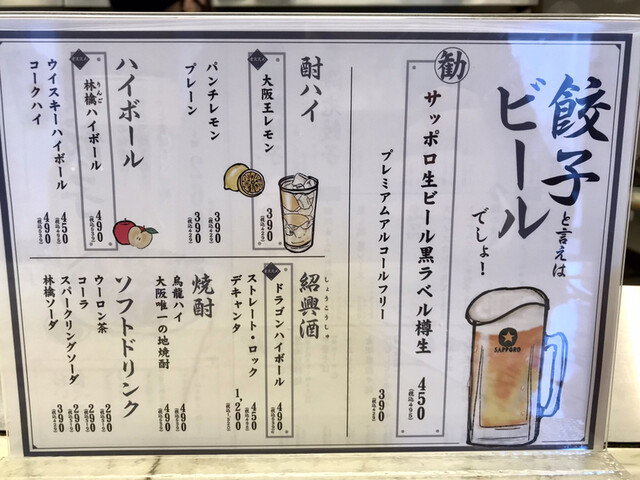 餃子と言えば
ビールでしょ!
SAPPORO
勧
サッポロ生ビール黒ラベル樽生
450
(税込495)
プレミアムアルコールフリー
390
(税込429)
酎ハイ
大阪王レモン
390
(税込429)
パンチレモン
390
(税込429)
プレーン
390
(税込429)
ハイボール
林檎ハイボール
りんご
490
(税込539)
ウイスキーハイボール
450
(税込495)
コークハイ
490
(税込539)
紹興酒
しょうこうしゅ
ドラゴンハイボール
490
(税込539)
ストレート・ロック
450
(税込495)
デキャンタ
1,200
(税込1,320)
焼酎
烏龍ハイ
490
(税込539)
大阪唯一の地焼酎
490
(税込539)
ソフトドリンク
ウーロン茶
290
(税込319)
コーラ
290
(税込319)
スパークリングソーダ
290
(税込319)
林檎ソーダ
390
(税込429)